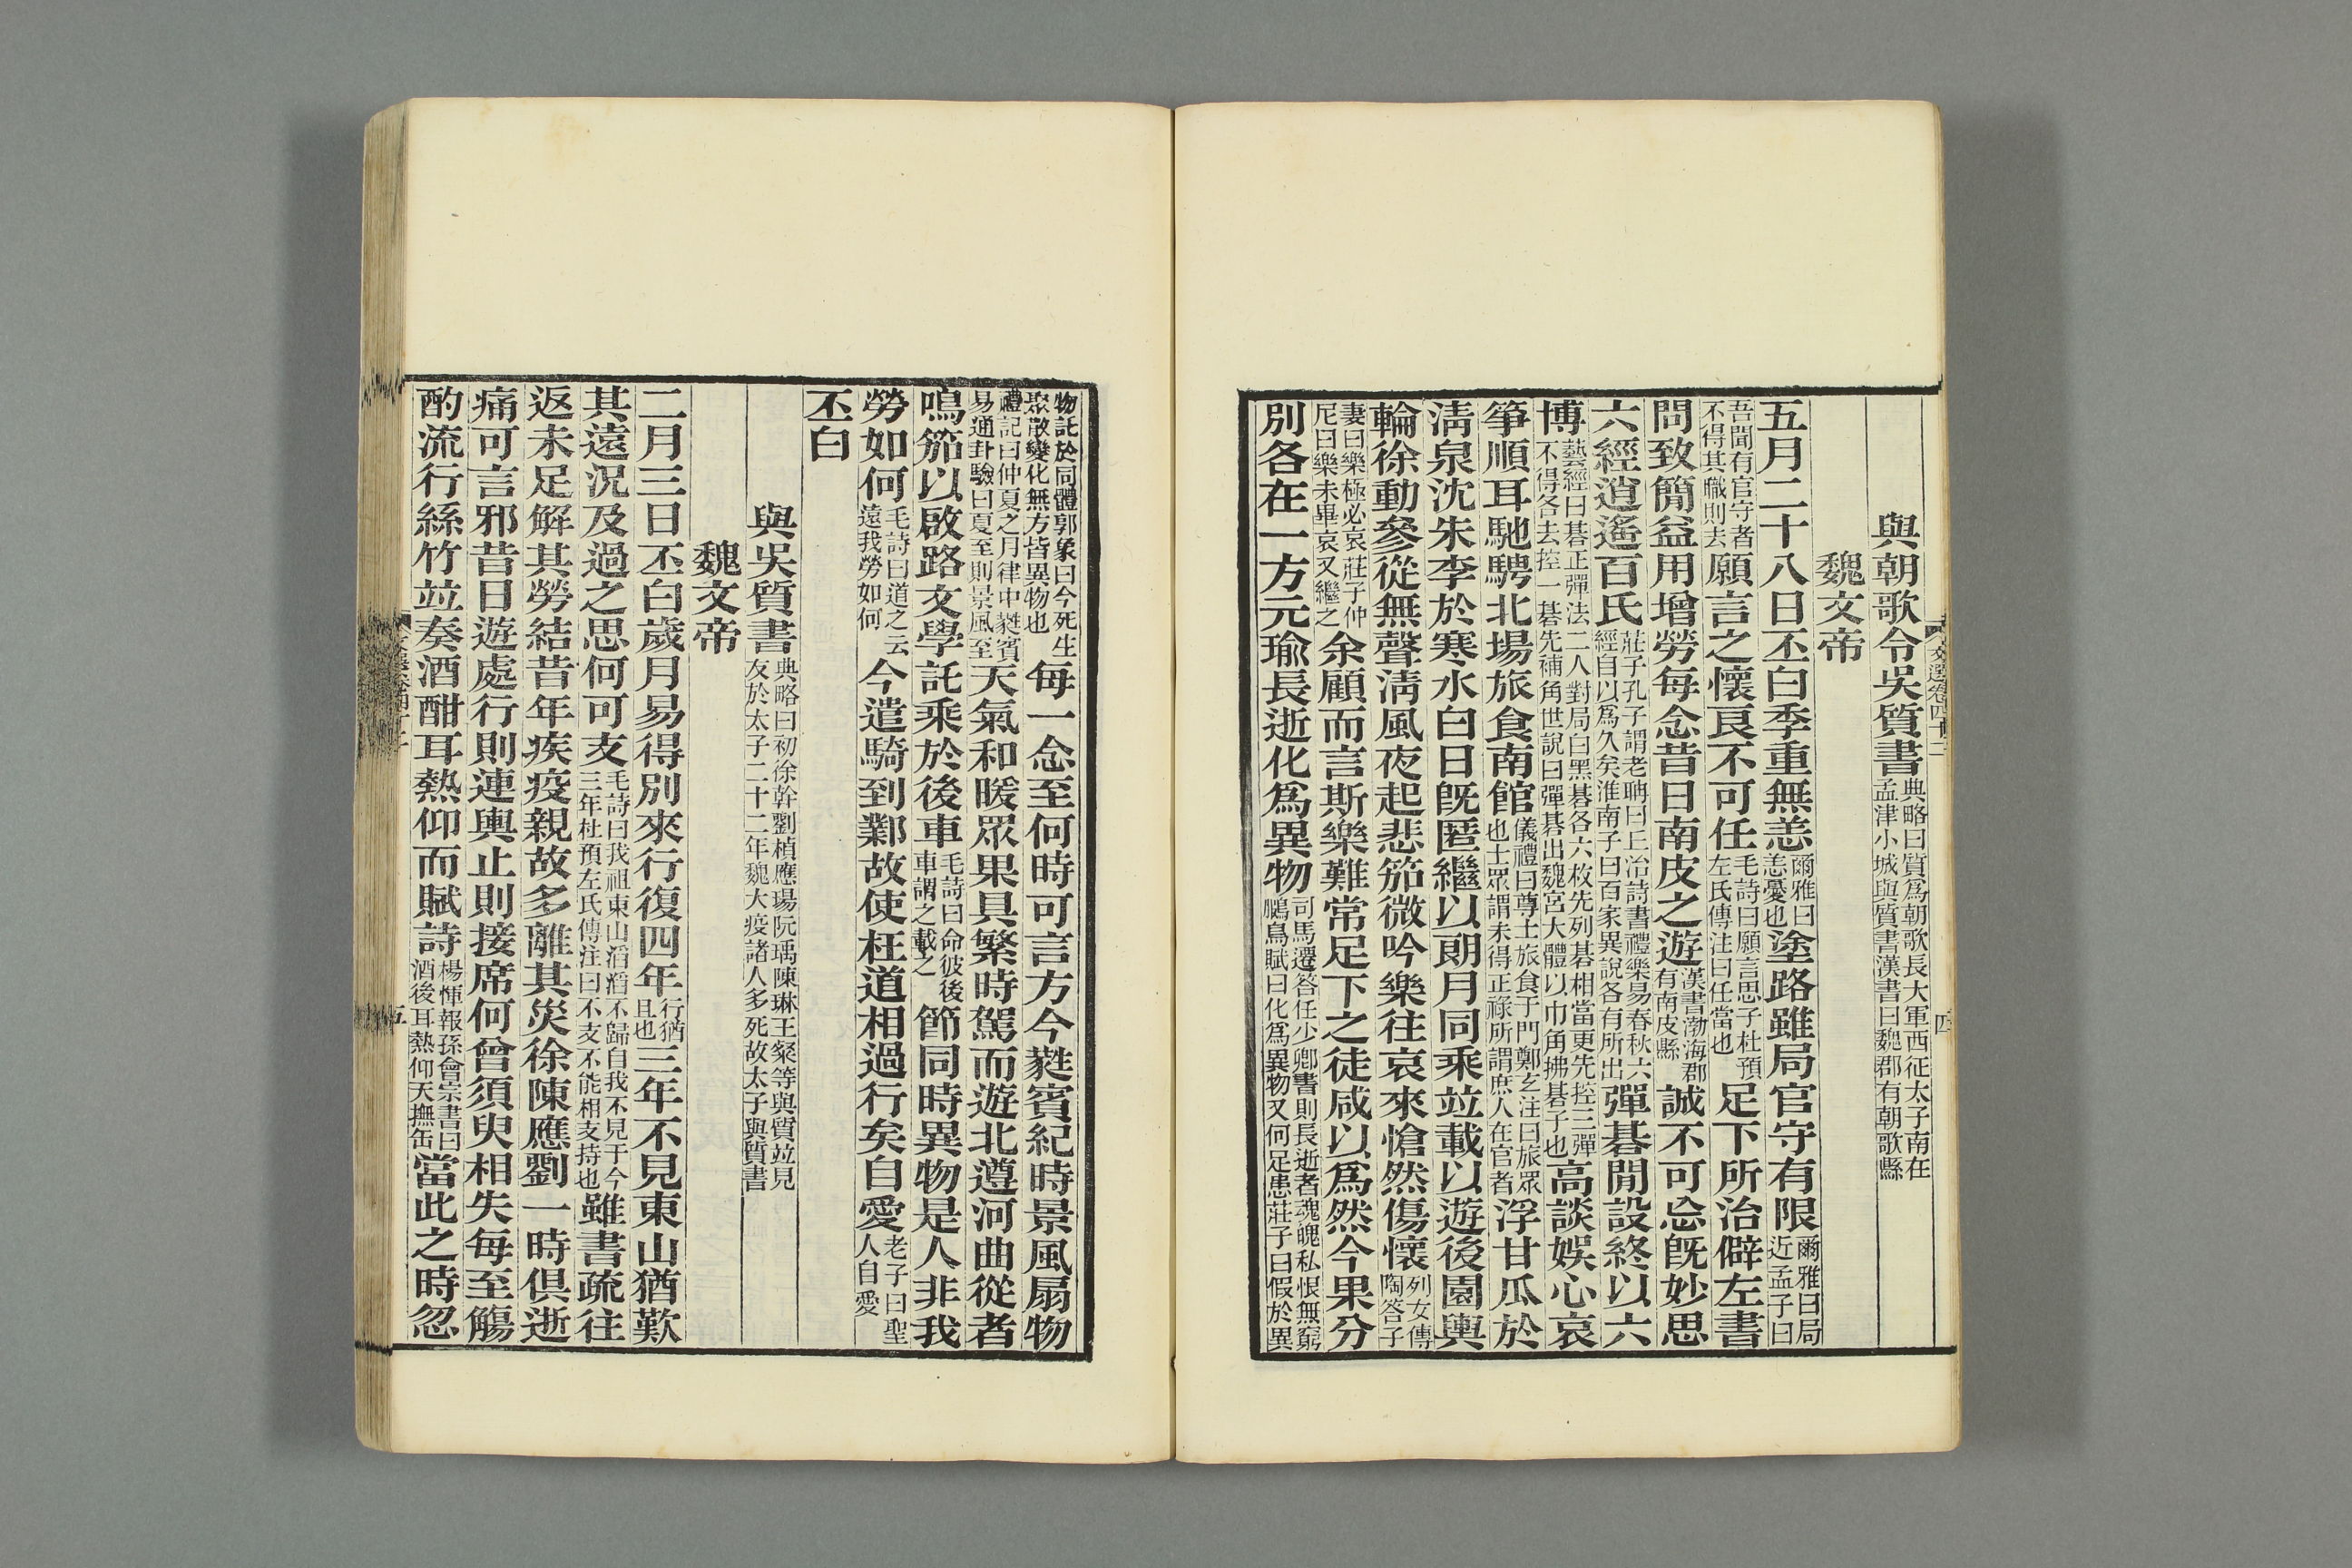 與朝歌令吳質書典略曰質爲朝歌長大軍西征太子南在孟津小城與質書漢書曰魏郡有朝歌縣
魏文帝
五月二十八日丕白季重無恙爾雅曰恙憂也塗路雖局官守有限爾雅曰局近孟子曰
吾聞有官守者不得其職則去願言之懷良不可任毛詩曰願言思子杜預左氏傳注曰任當也足下所治僻左書
問致簡益用增勞每念昔日南皮之遊漢書渤海郡有南皮縣誠不可忘旣妙思
六經逍遙百氏莊子孔子謂老聃曰丘治詩書禮樂易春秋六經自以爲久矣淮南子曰百家異說各有所出彈碁閒設終以六
博藝經曰碁正彈法二人對局白黑碁各六枚先列碁相當更先控三彈不得各去控一碁先補角世說曰彈碁出魏宮大體以巾角拂碁子也高談娛心哀
箏順耳馳騁北場旅食南館儀禮曰尊士旅食于門鄭玄注曰旅眾也士眾謂未得正祿所謂庶人在官者浮甘瓜於
淸泉沈朱李於寒水白日旣匿繼以朗月同乘竝載以遊後園輿
輪徐動參從無聲淸風夜起悲笳微吟樂往哀來愴然傷懷列女傳陶答子
妻曰樂極必哀莊子仲尼曰樂未畢哀又繼之余顧而言斯樂難常足下之徒咸以爲然今果分
別各在一方元瑜長逝化爲異物司馬遷答任少卿書則長逝者魂魄私恨無窮鵩鳥賦曰化爲異物又何足患莊子曰假於異
文選卷四十二
四
物託於同體郭象曰今死生聚散變化無方皆異物也每一念至何時可言方今蕤賓紀時景風扇物
禮記曰仲夏之月律中蕤賓易通卦驗曰夏至則景風至天氣和暖眾果具繁時駕而遊北遵河曲從者
鳴笳以啟路文學託乘於後車毛詩曰命彼後車謂之載之節同時異物是人非我
勞如何毛詩曰道之云遠我勞如何今遣騎到鄴故使枉道相過行矣自愛老子曰聖人自愛
丕白
與吳質書典略曰初徐幹劉楨應瑒阮瑀陳琳王粲等與質竝見友於太子二十二年魏大疫諸人多死故太子與質書
魏文帝
二月三日丕白歲月易得別來行復四年行猶且也三年不見東山猶歎
其遠況及過之思何可支毛詩曰我祖東山滔滔不歸自我不見于今三年杜預左氏傳注曰不支不能相支持也雖書疏往
返未足解其勞結昔年疾疫親故多離其災徐陳應劉一時俱逝
痛可言邪昔日遊處行則連輿止則接席何曾須臾相失每至觴
酌流行絲竹竝奏酒酣耳熱仰而賦詩楊惲報孫會宗書曰酒後耳熱仰天撫缶當此之時忽
五